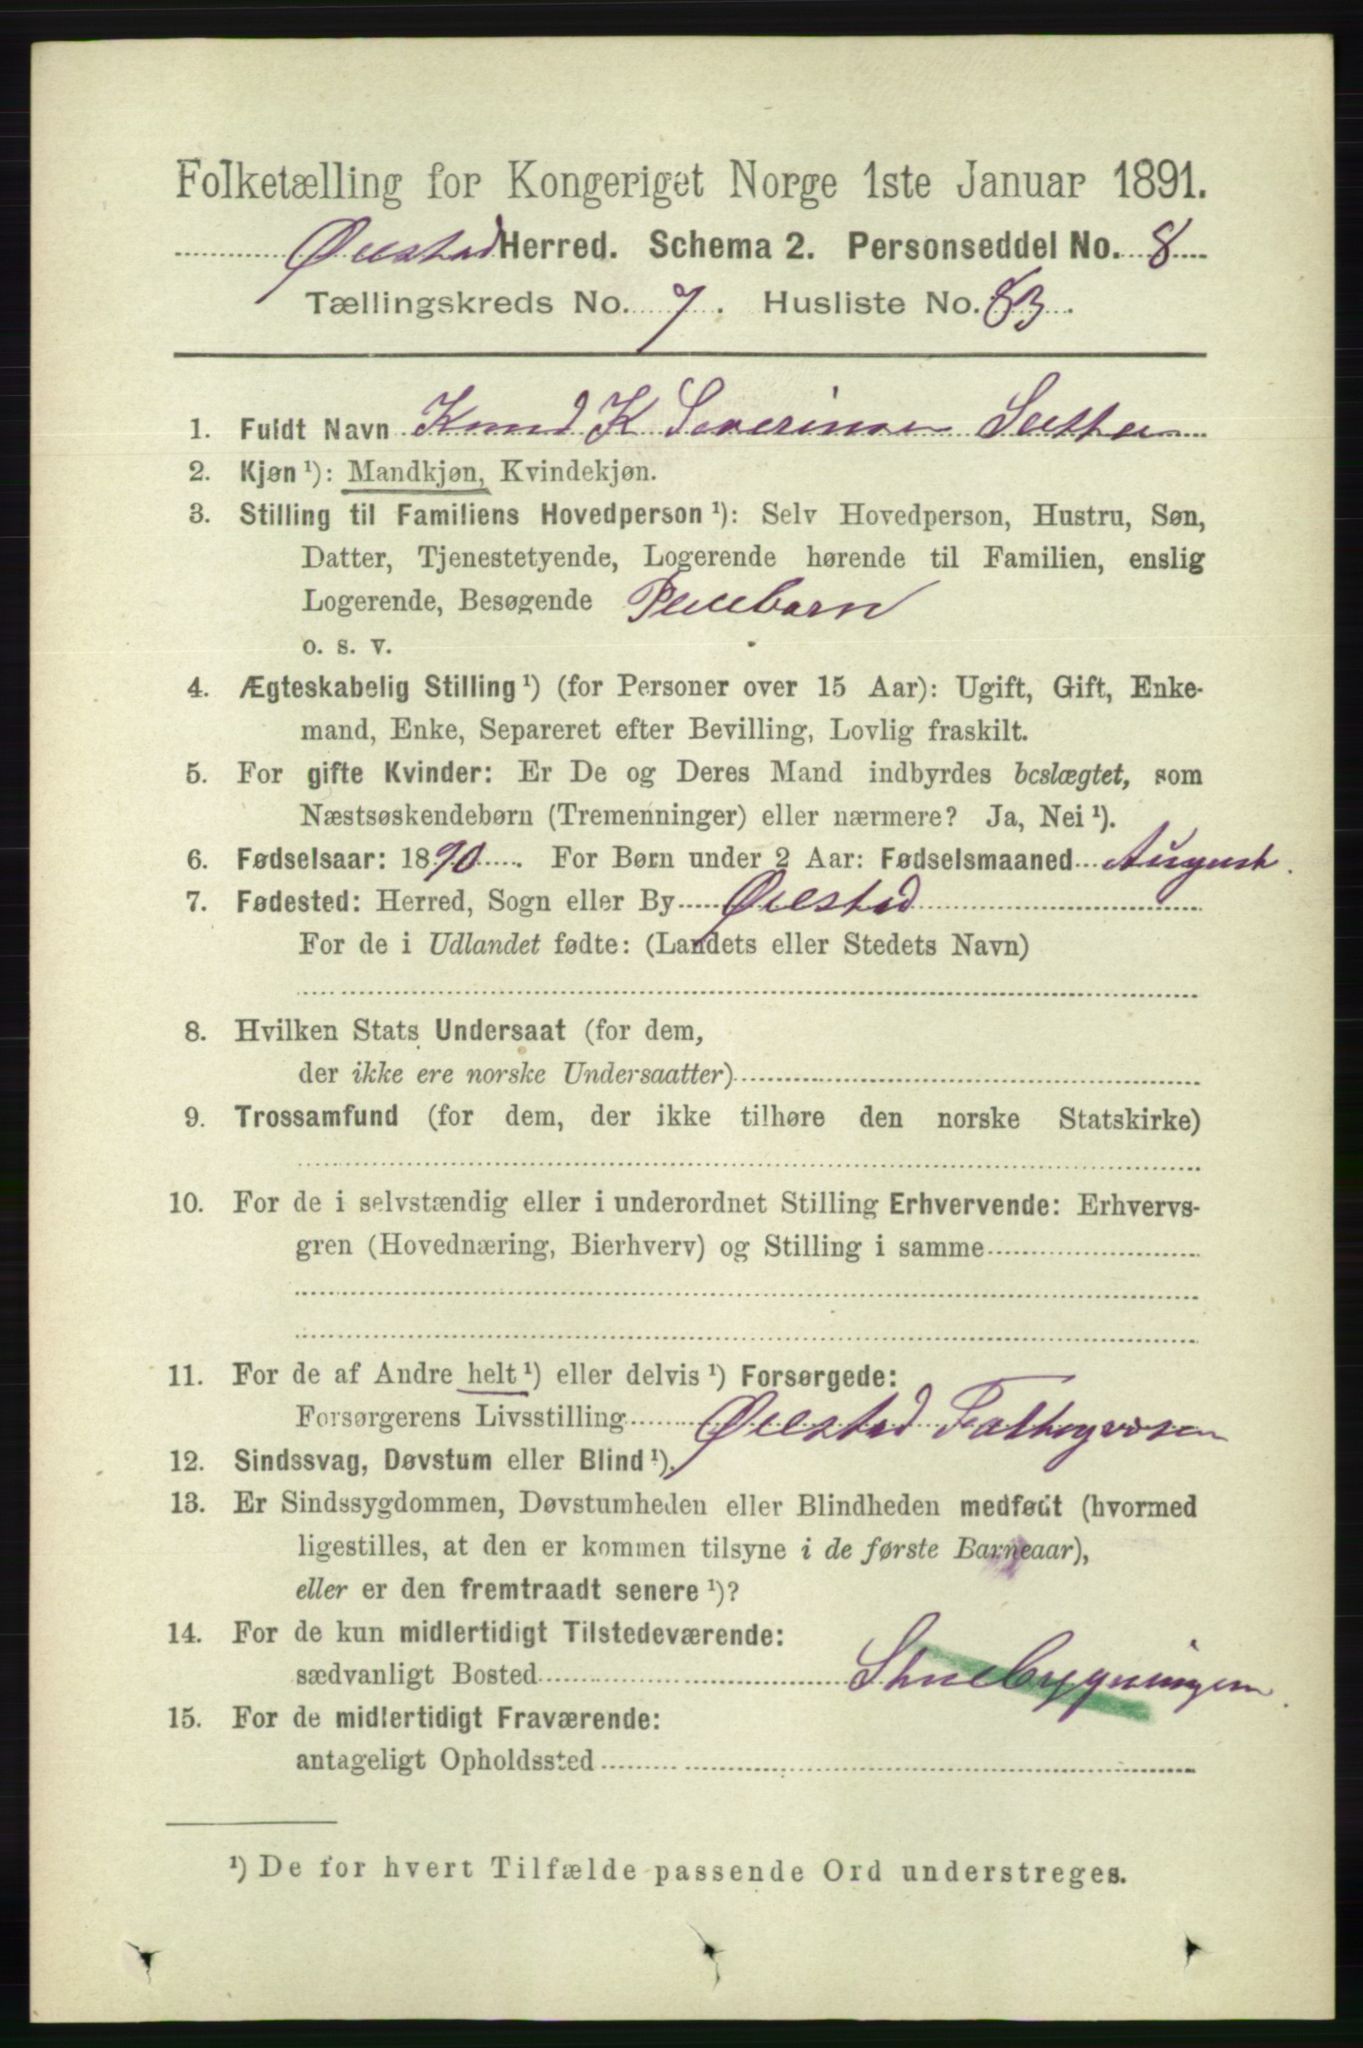 Folketælling for Kongeriget Norge 1ste Januar 1891.
Øiestad Herred. Schema 2. Personseddel No. 8
Tællingskreds No. 7. Husliste No. 83.
1. Fuldt Navn Knud K Severinsen
2. Kjøn ¹): Mandkjøn, Kvindekjøn.
3. Stilling til Familiens Hovedperson ¹): Selv Hovedperson, Hustru, Søn,
Datter, Tjenestetyende, Logerende hørende til Familien, enslig
Logerende, Besøgende Pleiebarn
o. s. v.
4. Ægteskabelig Stilling ¹) (for Personer over 15 Aar): Ugift, Gift, Enke-
mand, Enke, Separeret efter Bevilling, Lovlig fraskilt.
5. For gifte Kvinder: Er De og Deres Mand indbyrdes beslægtet, som
Næstsøskendebørn (Tremenninger) eller nærmere? Ja, Nei ¹).
6. Fødselsaar: 1890. For Børn under 2 Aar: Fødselsmaaned August.
7. Fødested: Herred, Sogn eller By Øiestad
For de i Udlandet fødte: (Landets eller Stedets Navn)
8. Hvilken Stats Undersaat (for dem,
der ikke ere norske Undersaatter)
9. Trossamfund (for dem, der ikke tilhøre den norske Statskirke)
10. For de i selvstændig eller i underordnet Stilling Erhvervende: Erhvervs-
gren (Hovednæring, Bierhverv) og Stilling i samme
11. For de af Andre helt ¹) eller delvis ¹) Forsørgede:
Forsørgerens Livsstilling Øiestad Fattigvæsen
12. Sindssvag, Døvstum eller Blind ¹).
13. Er Sindssygdommen, Døvstumheden eller Blindheden medfødt (hvormed
ligestilles, at den er kommen tilsyne i de første Barneaar),
eller er den fremtraadt senere ¹)?
14. For de kun midlertidigt Tilstedeværende:
sædvanligt Bosted Stuebygningen.
15. For de midlertidigt Fraværende:
antageligt Opholdssted
¹) De for hvert Tilfælde passende Ord understreges.